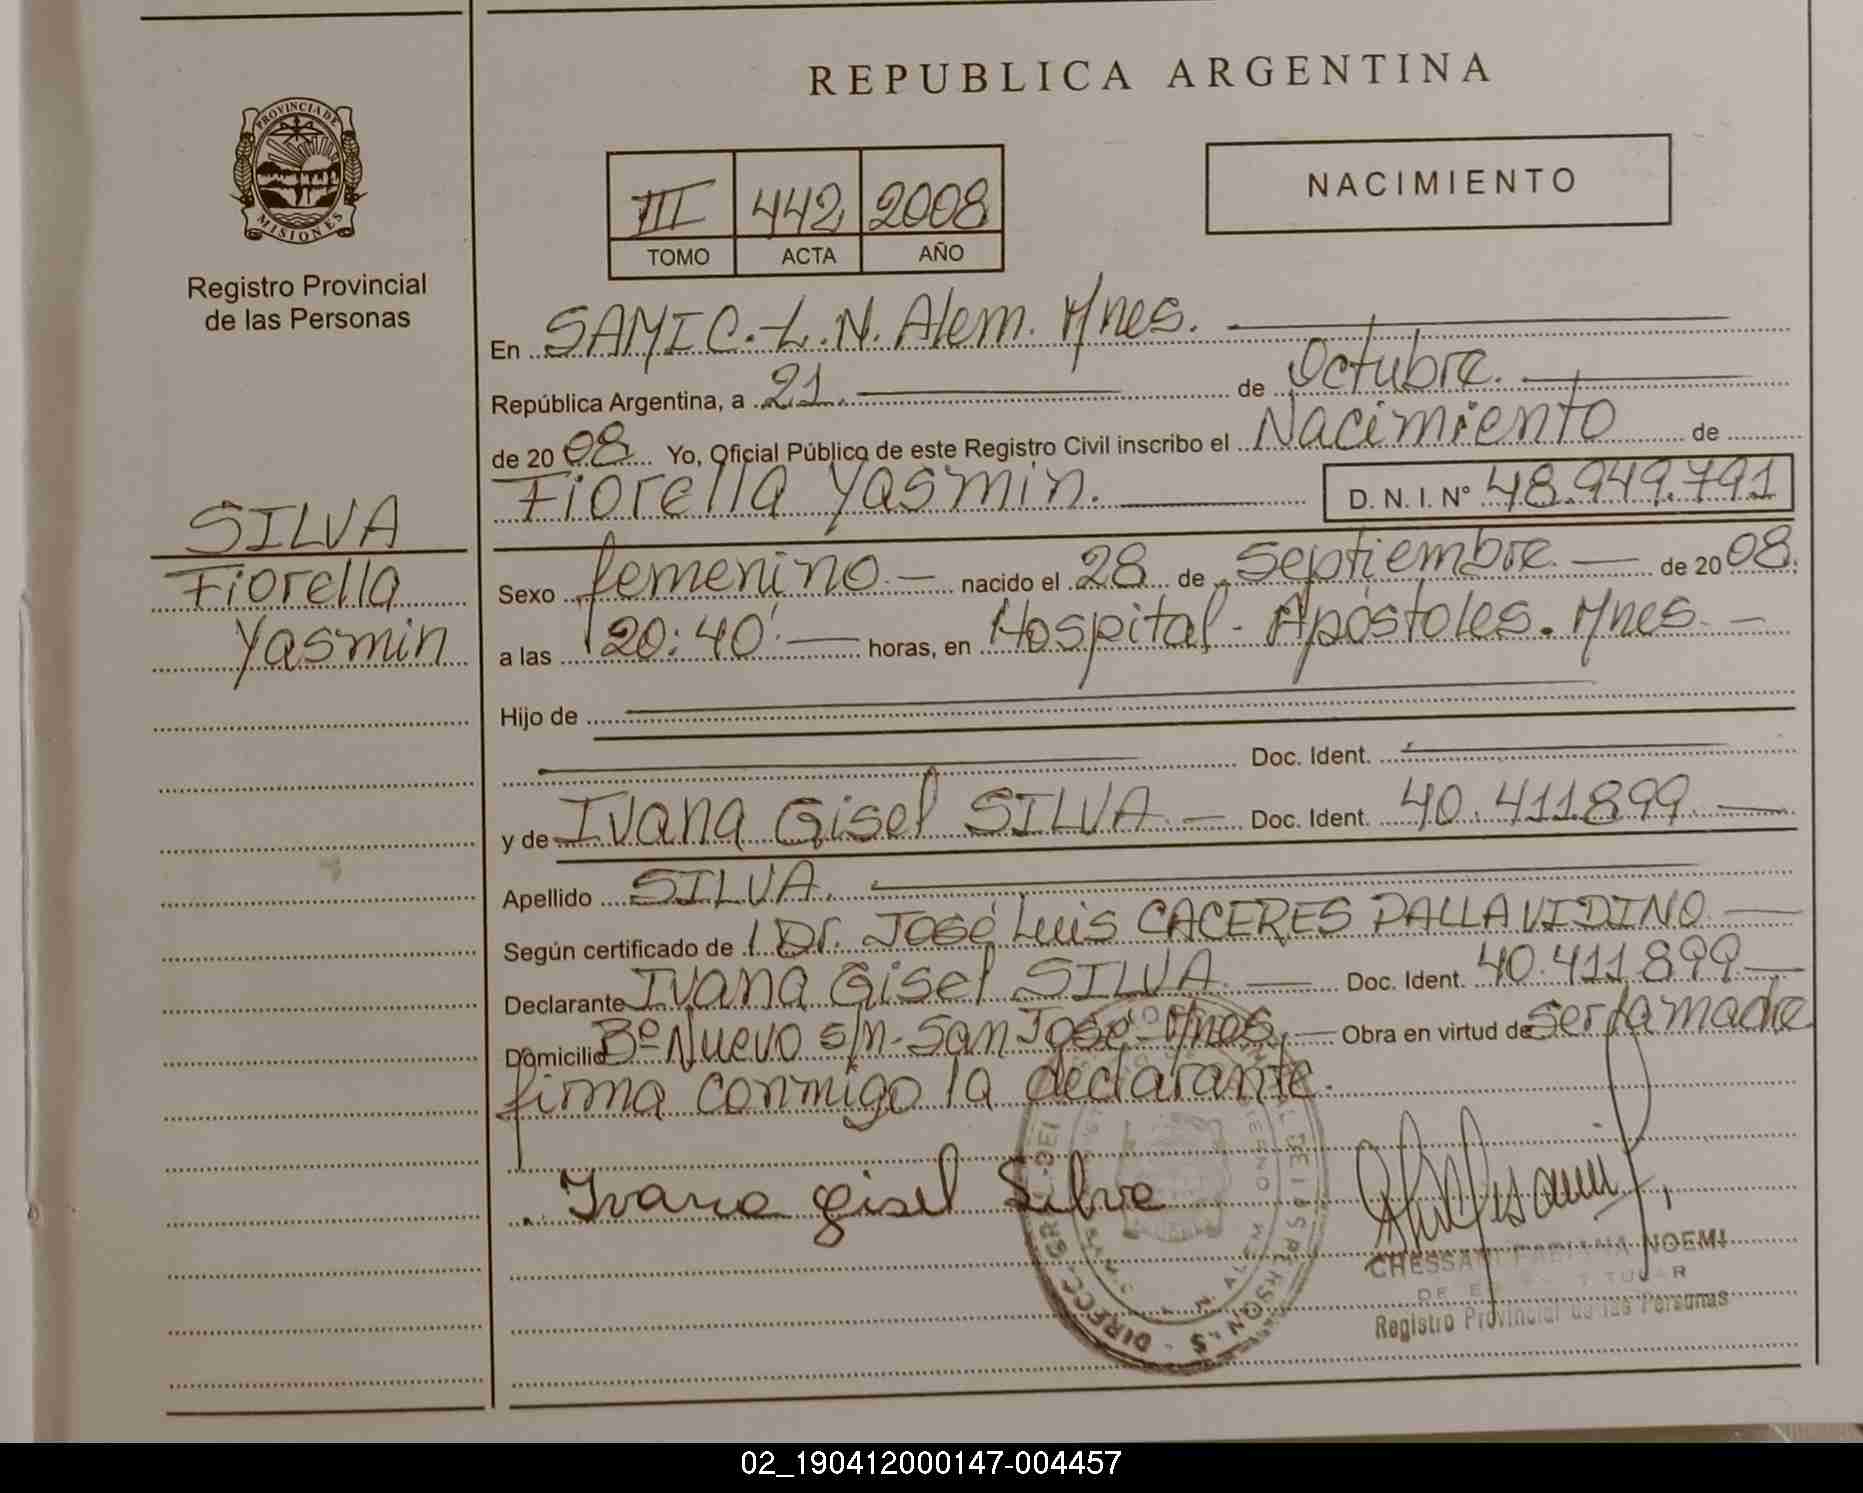 REPUBLICA ARGENTINA
PROVINCIA DE
MISIONES
Registro Provincial
de las Personas
III 442 2008
TOMO ACTA AÑO
NACIMIENTO
En SAMIC.-L.N. Alem. Mnes.
República Argentina, a 21. de Octubre.
de 2008 Yo, Oficial Público de este Registro Civil inscribo el Nacimiento de
Fiorella Yasmin. D. N. I. N° 48.949.791
SILVA
Fiorella
Yasmin
Sexo femenino.- nacido el 28 de Septiembre. de 2008.
a las 20:40' horas, en Hospital - Apóstoles. Mnes.
Hijo de
Doc. Ident.
y de Ivana Gisel SILVA.- Doc. Ident. 40.411.899.
Apellido SILVA.
Según certificado de Dr. José Luis CACERES PALLAVIDINO.
Declarante Ivana Gisel SILVA. Doc. Ident. 40.411.899
Domicilio Bº Nuevo s/n-San José-Mnes. Obra en virtud de ser la madre
firma conmigo la declarante.
Ivana Gisel Silva
NOEMI
Registro Provincial de las Personas
02_190412000147-004457